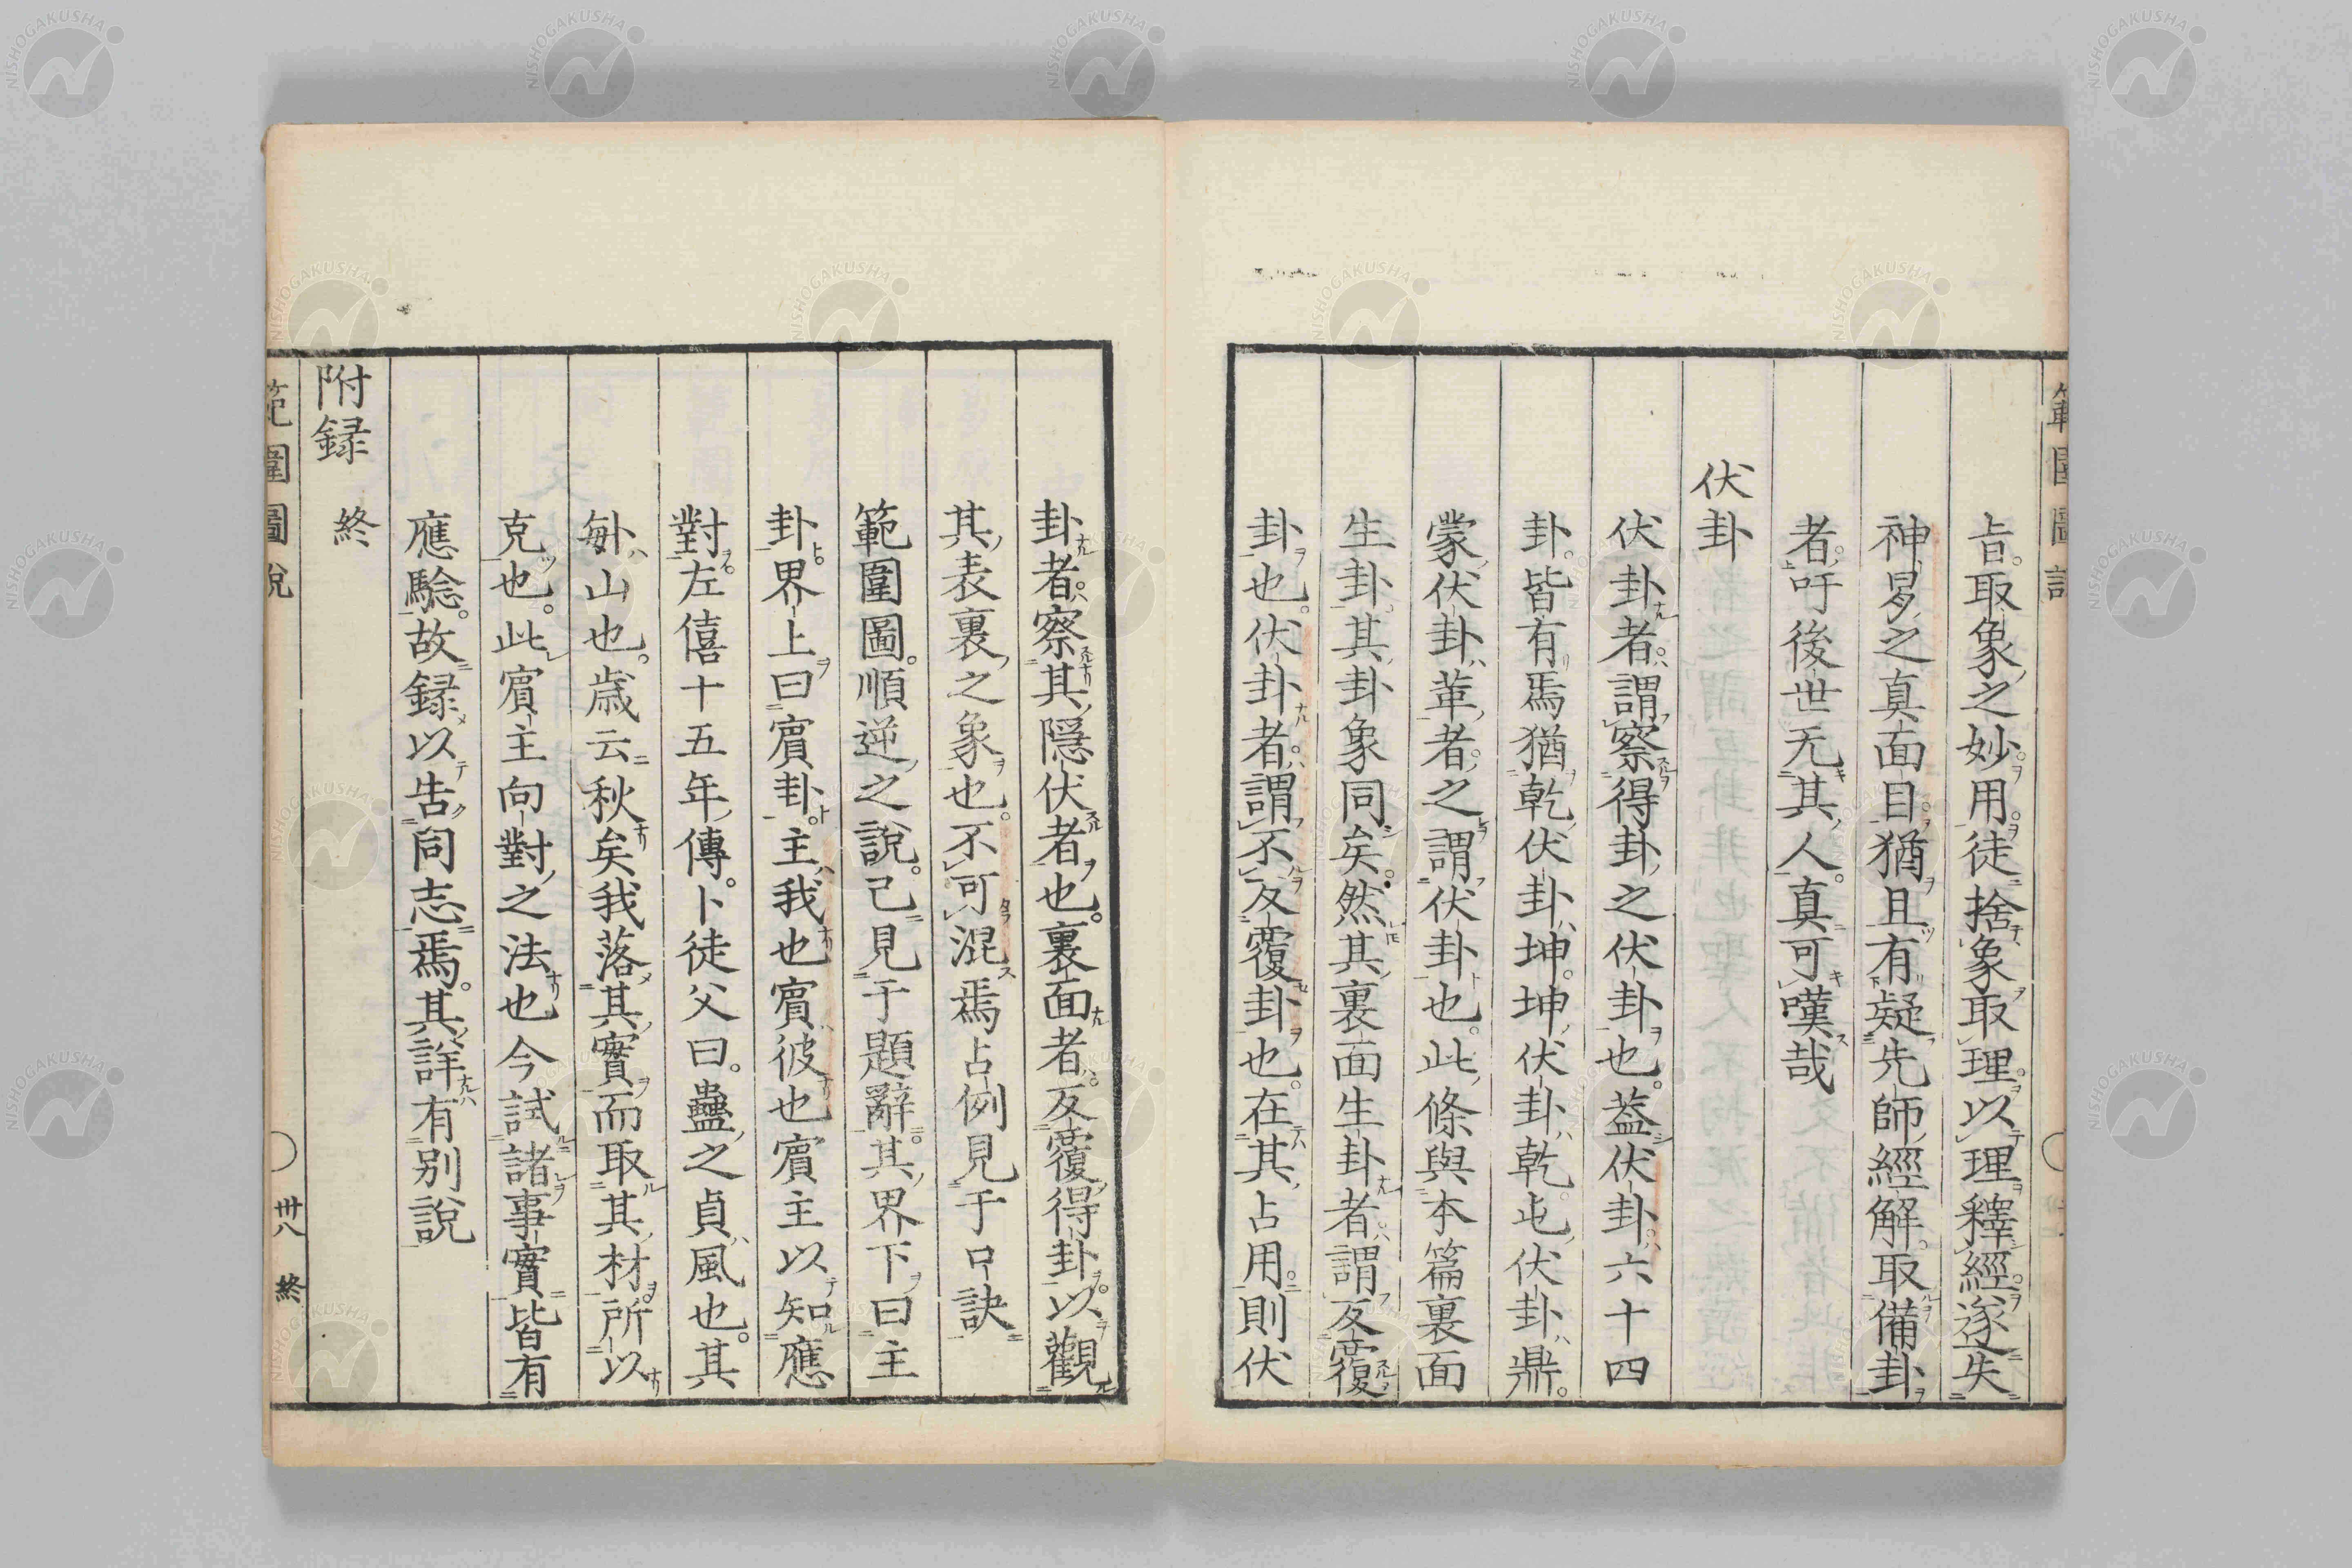 旨取象之妙用徒捨象取理以理釋經遂失
神易之真面目猶且有疑先師經解取備卦
者吁後世无其人真可嘆哉
伏卦
伏卦者謂察得卦之伏卦也蓋伏卦六十四
卦皆有焉猶乾伏卦坤坤伏卦乾屯伏卦鼎
蒙伏卦革者之謂伏卦也此條與本篇裏面
生卦其卦象同矣然其裏面生卦者謂反覆
卦也伏卦者謂不反覆卦也在其占用則伏
卦者察其隱伏者也裏面者反覆得卦以觀
其表裏之象也不可混焉占例見于口訣
範圍圖順逆之說已見于題辭其界下曰主
卦界上曰賓卦主我也賓彼也賓主以知應
對左僖十五年傳卜徒父曰蠱之貞風也其
𠧩山也歲云秋矣我落其實而取其材所以
克也此賓主向對之法也今試諸事實皆有
應驗故録以告同志焉其詳有別說
附録 終
範圍圖說 卅八 終
NISHOGAKUSHA